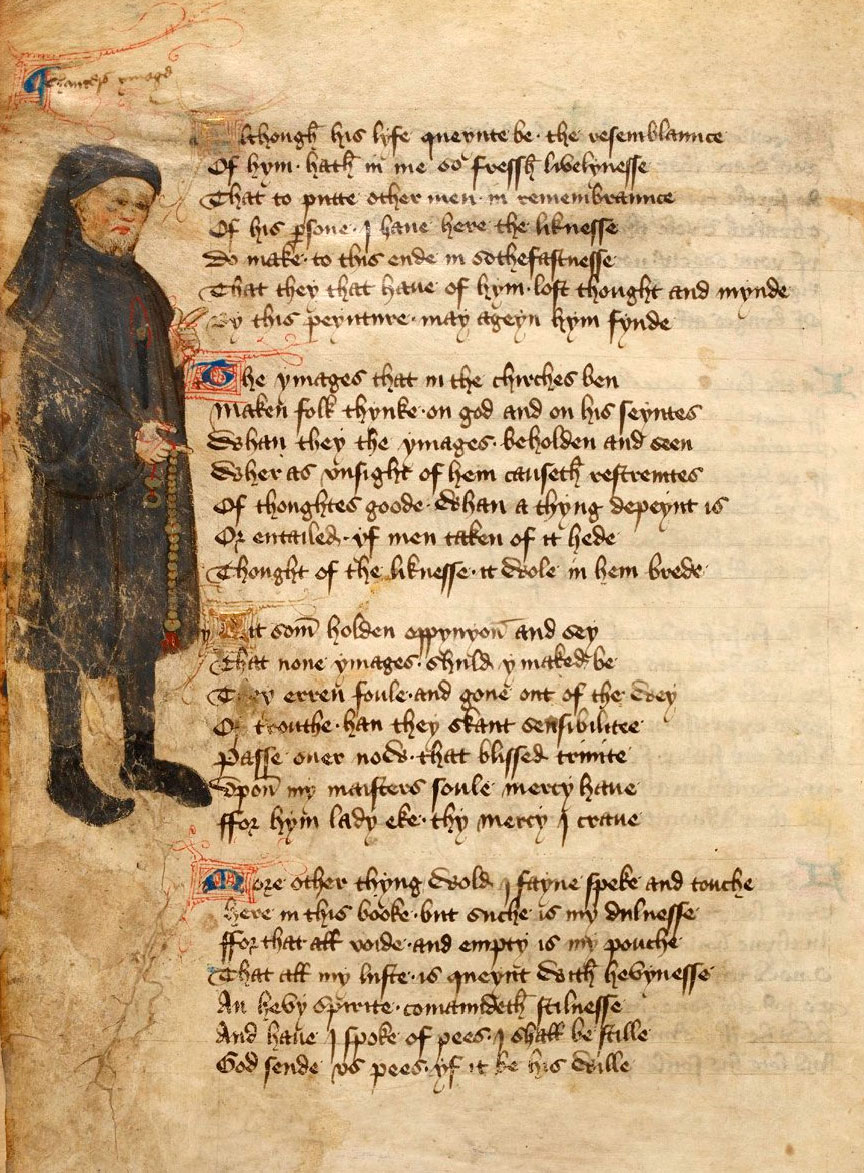 Chaucers ymage
Although his lyfe queynte be the resemblaunce
Of hym hath in me so fressh lyvelynesse
That to putte other men in remembraunce
Of his psone I haue here the liknesse
Do make to this ende in sothefastnesse
That they that haue of hym loft thought and mynde
By this peynture may ageyn hym fynde
The ymages that in the chirches ben
Maken folk thynke on god and on his seyntes
Whan they the ymages beholden and seen
Wher as vnsight of hem causeth restreintes
Of thoughtes goode Whan a thyng depeynt is
Or entailed yf men taken of it hede
Thought of the liknesse it Wole in hem brede
Yit som holden oppynyon and sey
That none ymages shuld ymaked be
They erren foule and gone out of the Wey
Of trouthe han they skant sensibilitee
Passe ouer now that blissed trinite
Vpon my maisters soule mercy haue
ffor hym lady eke thy mercy I craue
More other thyng Wold I fayne speke and touche
here in this booke but suche is my dulnesse
ffor that all voide and empty is my pouche
That all my luste is queynt With hevynesse
An hevy spirite comaundeth stilnesse
And haue I spoke of pees I shall be stille
God sende vs pees yf it be his Wille